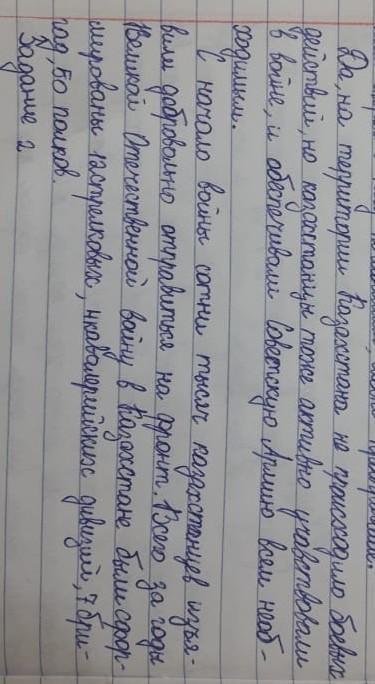 Да, на территории Казахстана не происходило боевых
действий, но казахстанцы тоже активно учавствовали
в войне, и обеспечивали Советскую Армию всем необ-
ходимым.
С начало войны сотни тысяч казахстанцев изъя-
вили добровольно отправиться на фронт. Всего за годы
Великой Отечественной войну в Казахстане были сфор-
мированы стрелковых, 4кавалерийских дивизий, 7 бри-
гад, 50 полков.
Задание 2